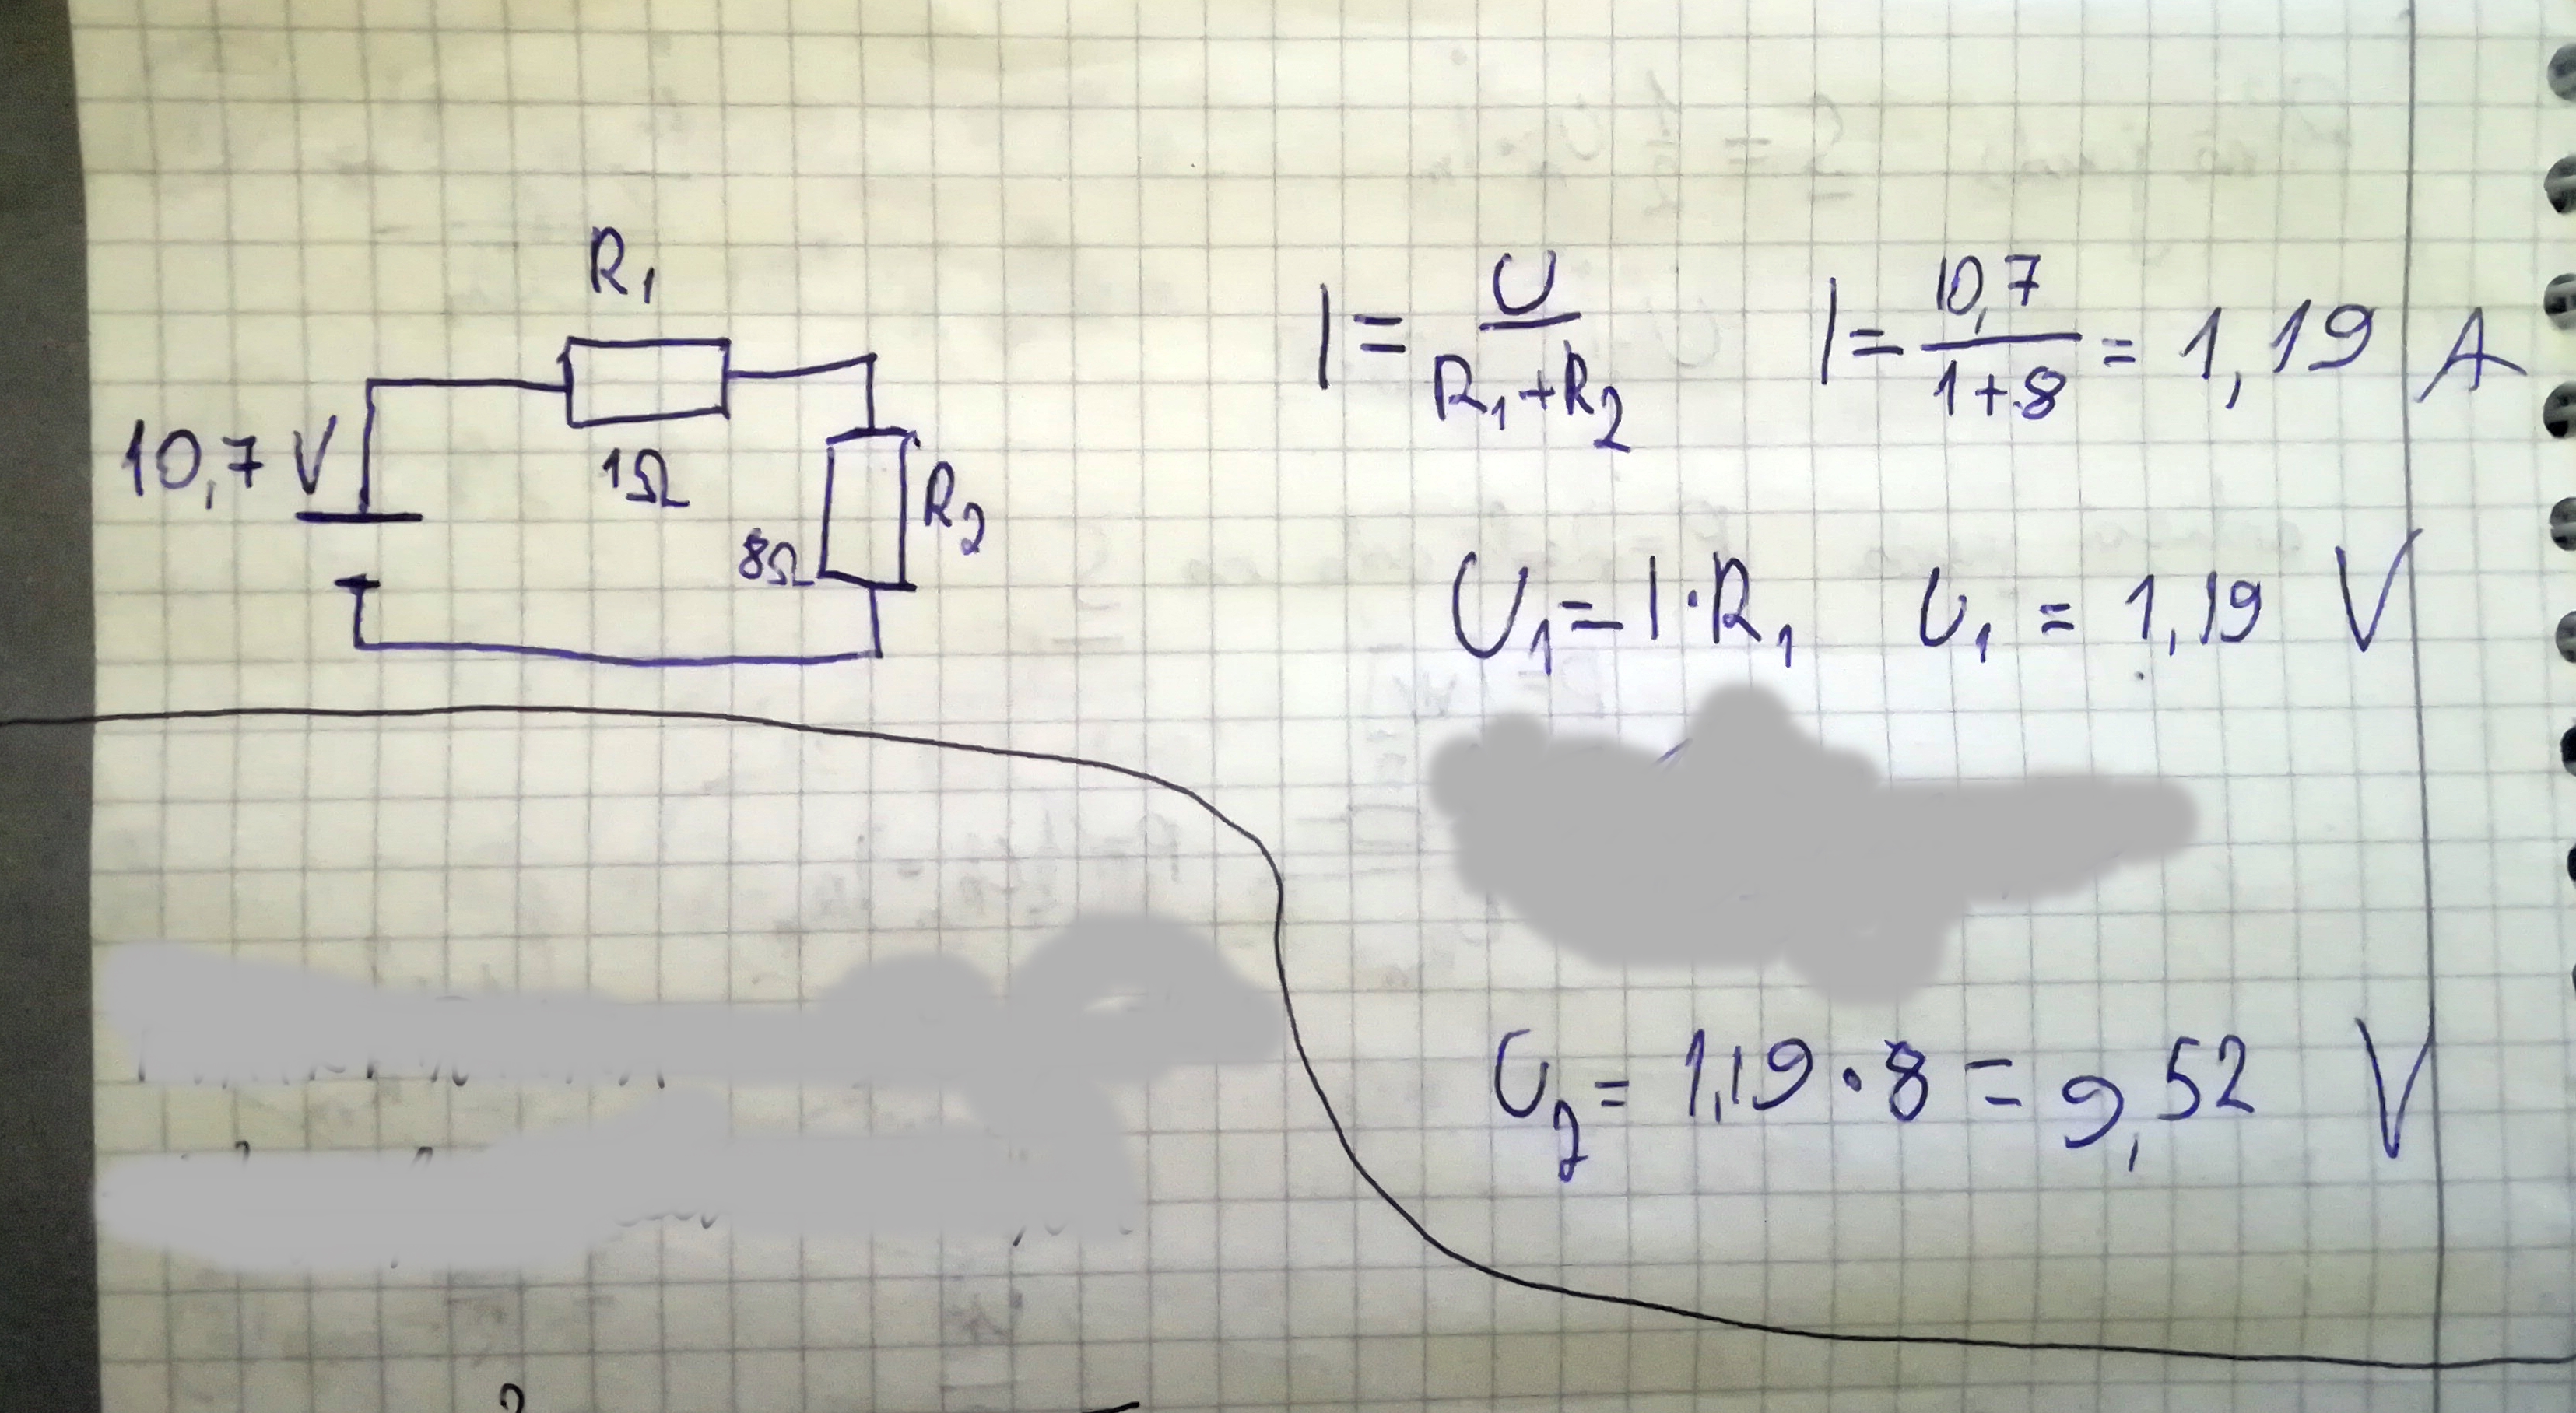 R₁
10,7 V
1Ω
R₂
8Ω
I = U / (R₁+R₂)   I = 10,7 / (1+8) = 1,19 A
U₁ = I·R₁   U₁ = 1,19 V
U₂ = 1,19 · 8 = 9,52 V